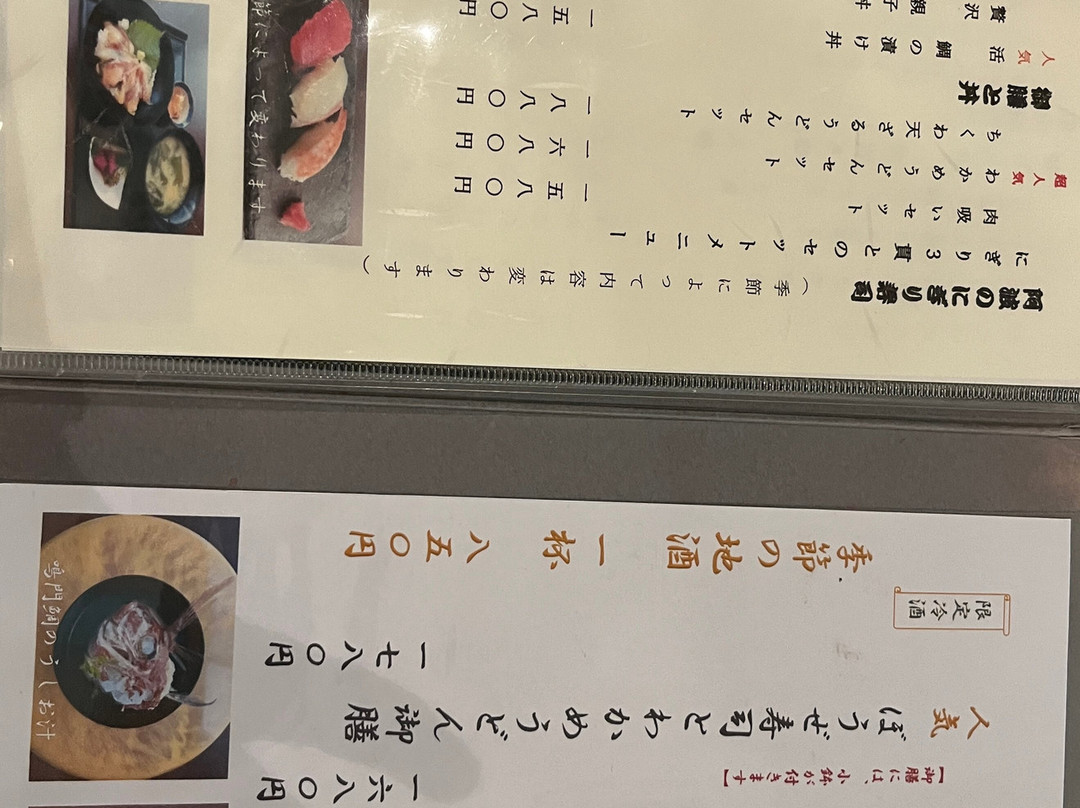 【御膳には、小鉢が付きます】
一六八〇円
人気 ぼうぜ寿司とわかめうどん御膳
一七八〇円
限定冷酒
季節の地酒 一杯 八五〇円
鳴門鯛のうしお汁
阿波のにぎり寿司
(季節によって内容は変わります)
にぎり3貫とのセットメニュー
肉吸いセット 一五八〇円
超人気 わかめうどんセット 一六八〇円
ちくわ天ざるうどんセット 一八八〇円
御膳と丼
人気 活鯛の漬け丼 一五八〇円
贅沢 親子丼
節によって変わります